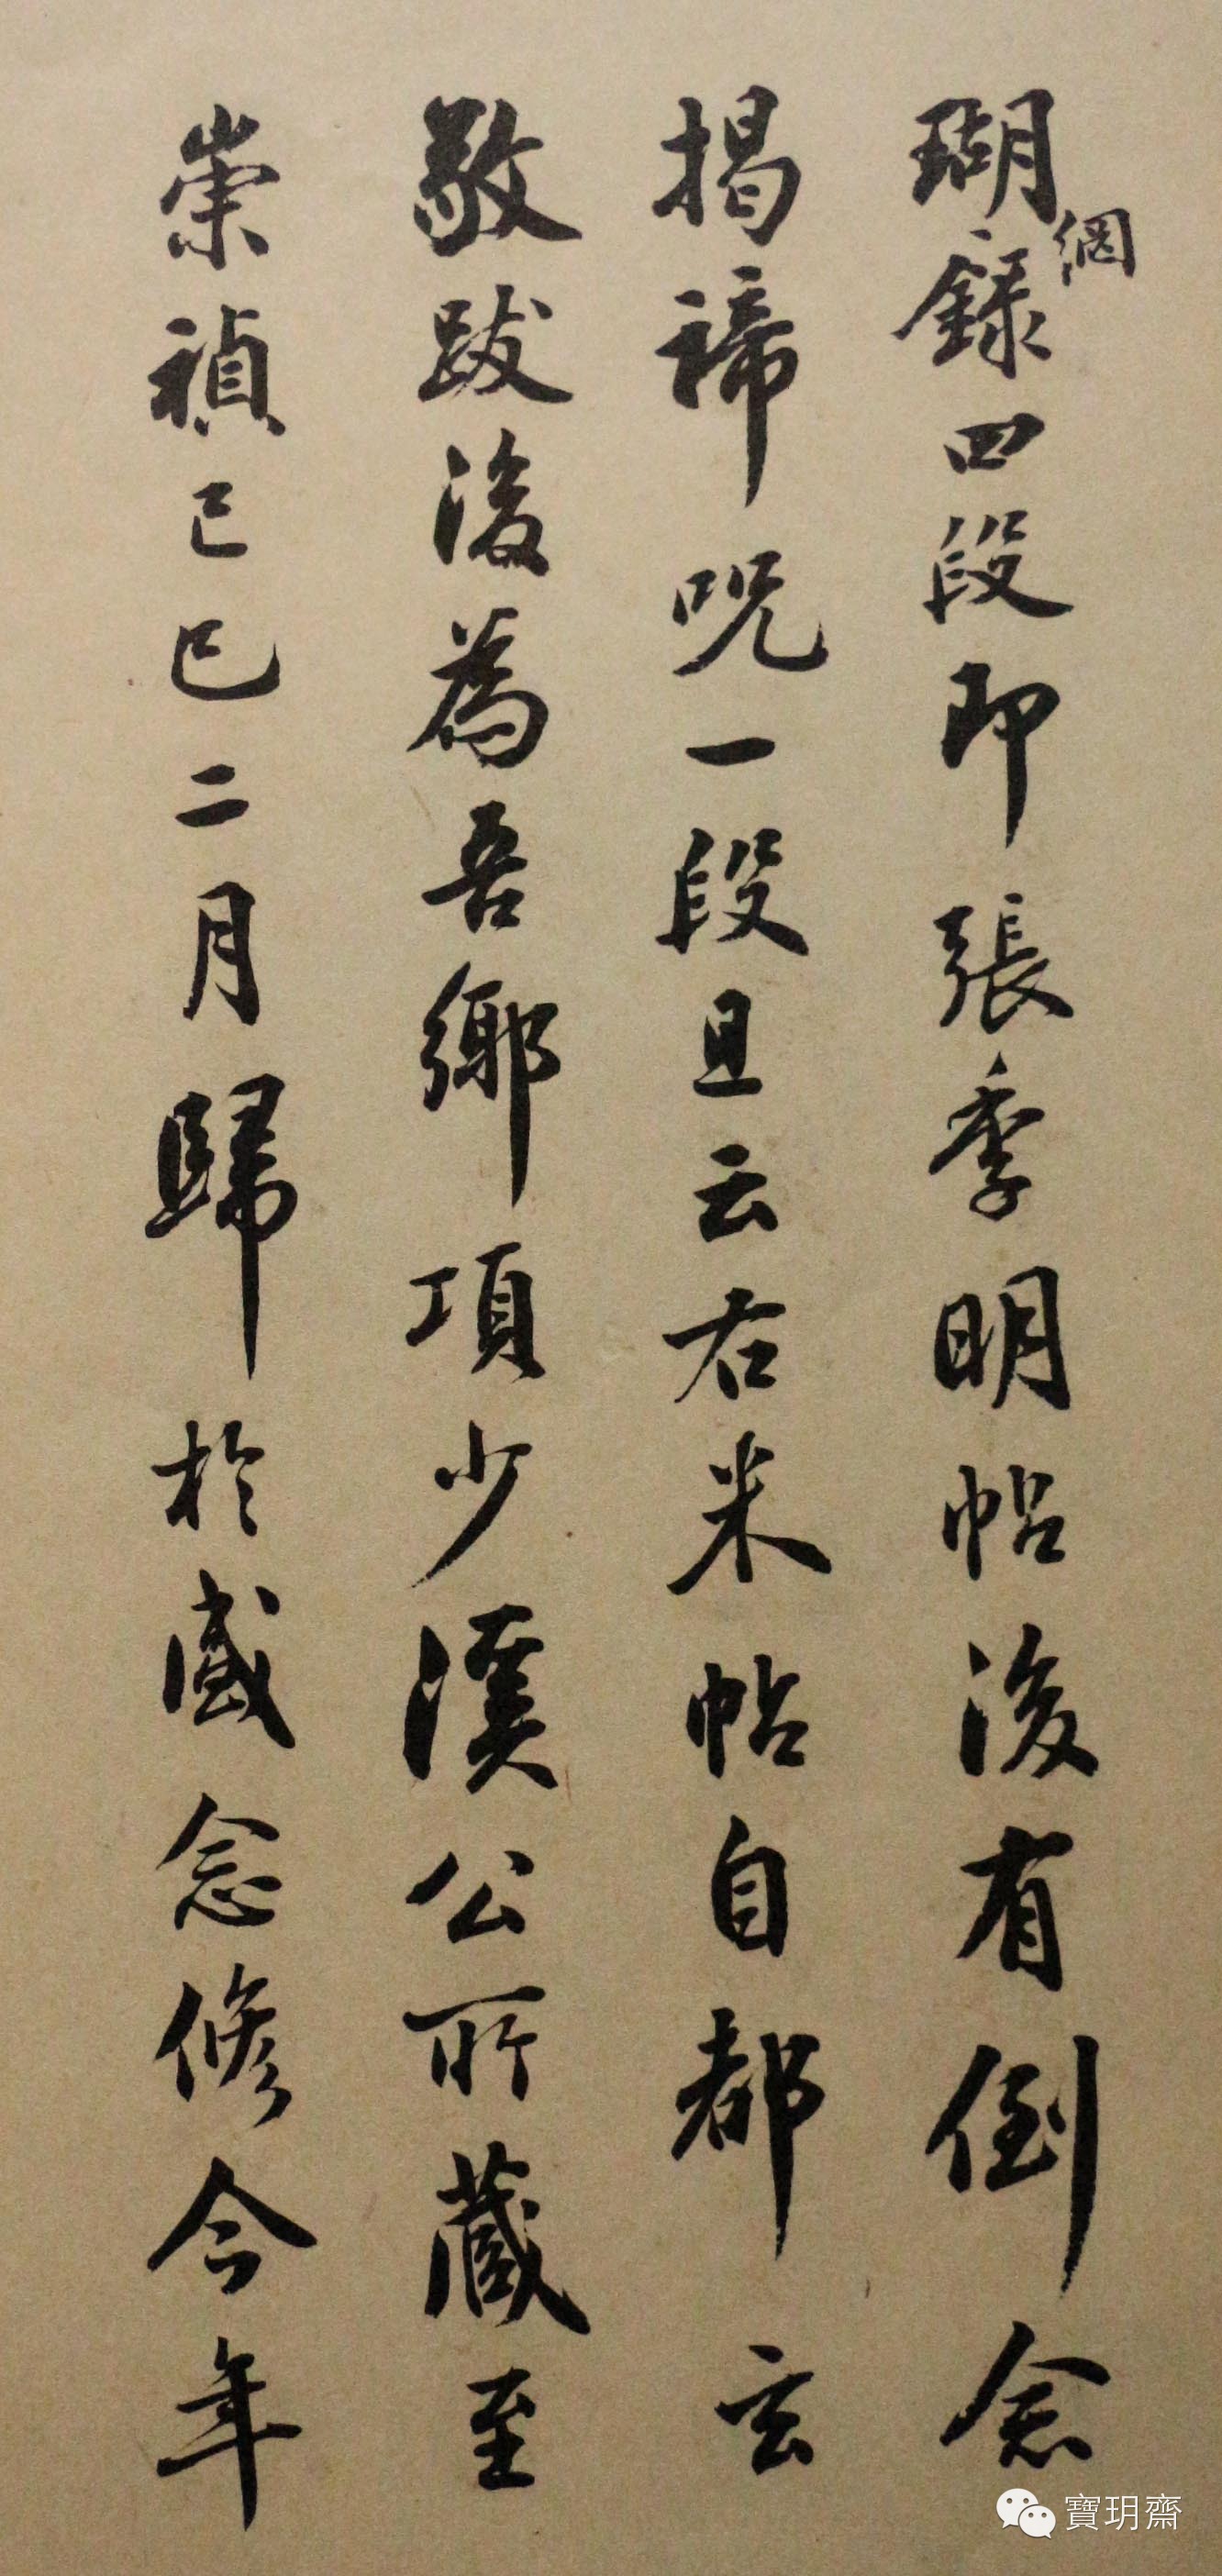 瑚網錄四段即張季明帖後有倒念
揭諦咒一段且云右米帖自都玄
敬跋後為吾鄉項少溪公所藏至
崇禎己巳二月歸於盛念修今年
寶玥齋